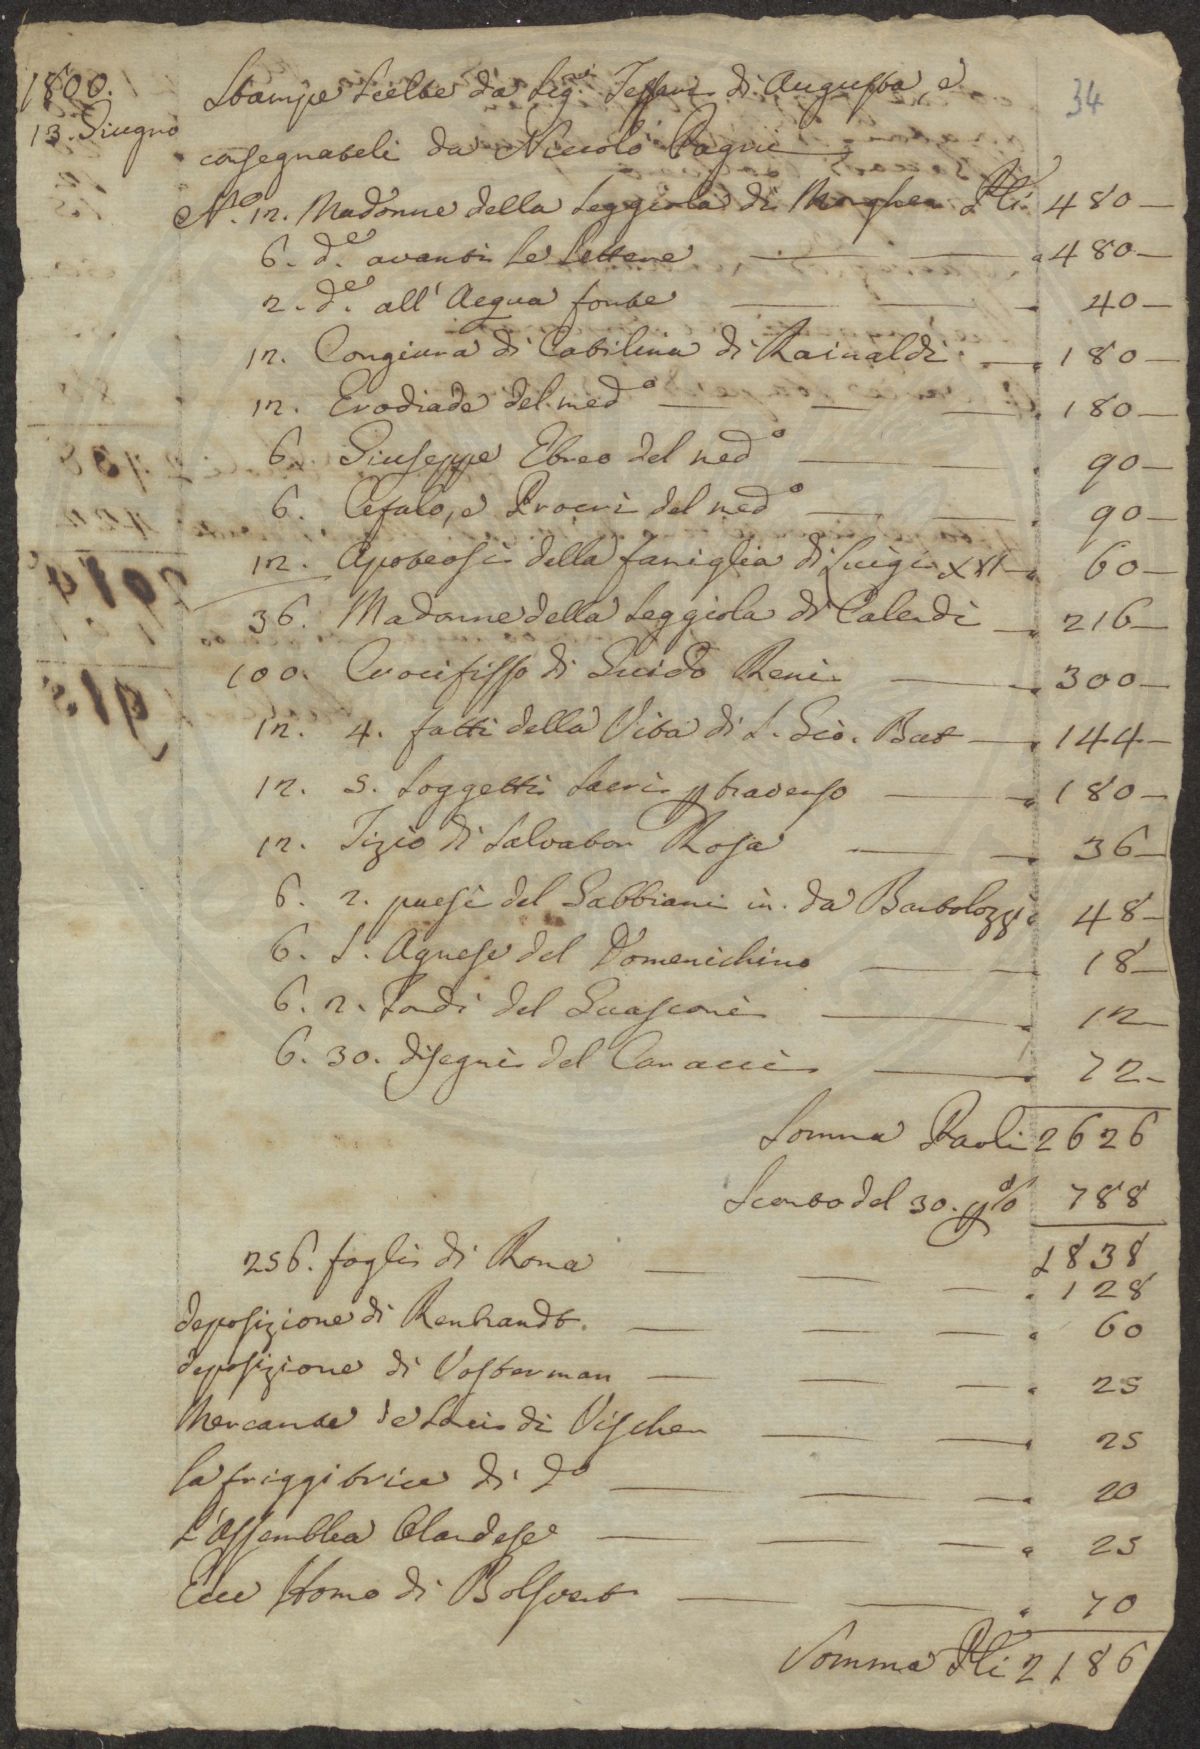 34
1800.
13. Giugno
Stampe scelte da Sig.ri Tessari di Augusta, e
consegnateli da Niccolò Pagni
N.o 12. Madonne della Seggiola di Morghen Pli 480 —
6. d.e avanti le lettere — — " 480 —
2. d.e all' Acqua forte — — " 40 —
12. Congiura di Catilina di Rainaldi — " 180 —
12. Erodiade del med.o — — — " 180 —
6. Giuseppe Ebreo del med.o — — " 90 —
6. Cefalo, e Procri del med.o — — " 90 —
12. Apoteosi della famiglia di Luigi XVI — " 60 —
36. Madonne della Seggiola di Calendi — " 216 —
100. Crocifisso di Guido Reni — — " 300 —
12. 4. fatti della Vita di S. Gio. Bat — " 144 —
12. 5. soggetti sacri p traverso — — " 180 —
12. Tizio di Salvator Rosa — — " 36 —
6. 2. paesi del Gabbiani in. da Bartolozzi " 48 —
6. S. Agnese del Domenichino — — 18 —
6. 2. Tondi del Guasconi — " 12 —
6. 30. disegni del Caracci — " 72 —
Somma Paoli 2626
Sconto del 30. p% 788
1838
256. fogli di Roma — — — " 128
deposizione di Renbrandt. — — — " 60
deposizione di Vosterman — — — " 25
Mercante de Sorci di Vischer — — " 25
la friggitrice di d.o — — — " 20
L'Assemblea Olandese — — — " 25
Ecce Homo di Bolsvert — — " 70
Somma Pli 2186